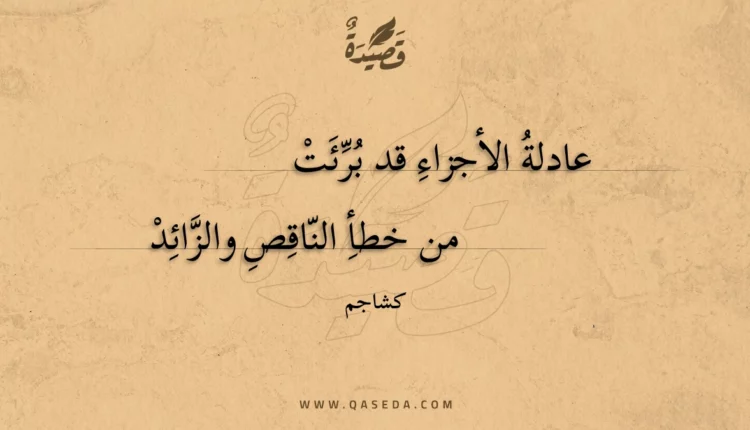 قَصِيْدَةٌ
عادلةُ الأجزاءِ قد بُرِّئَتْ
من خطأِ النّاقِصِ والزَّائِدْ
كشاجم
WWW.QASEDA.COM